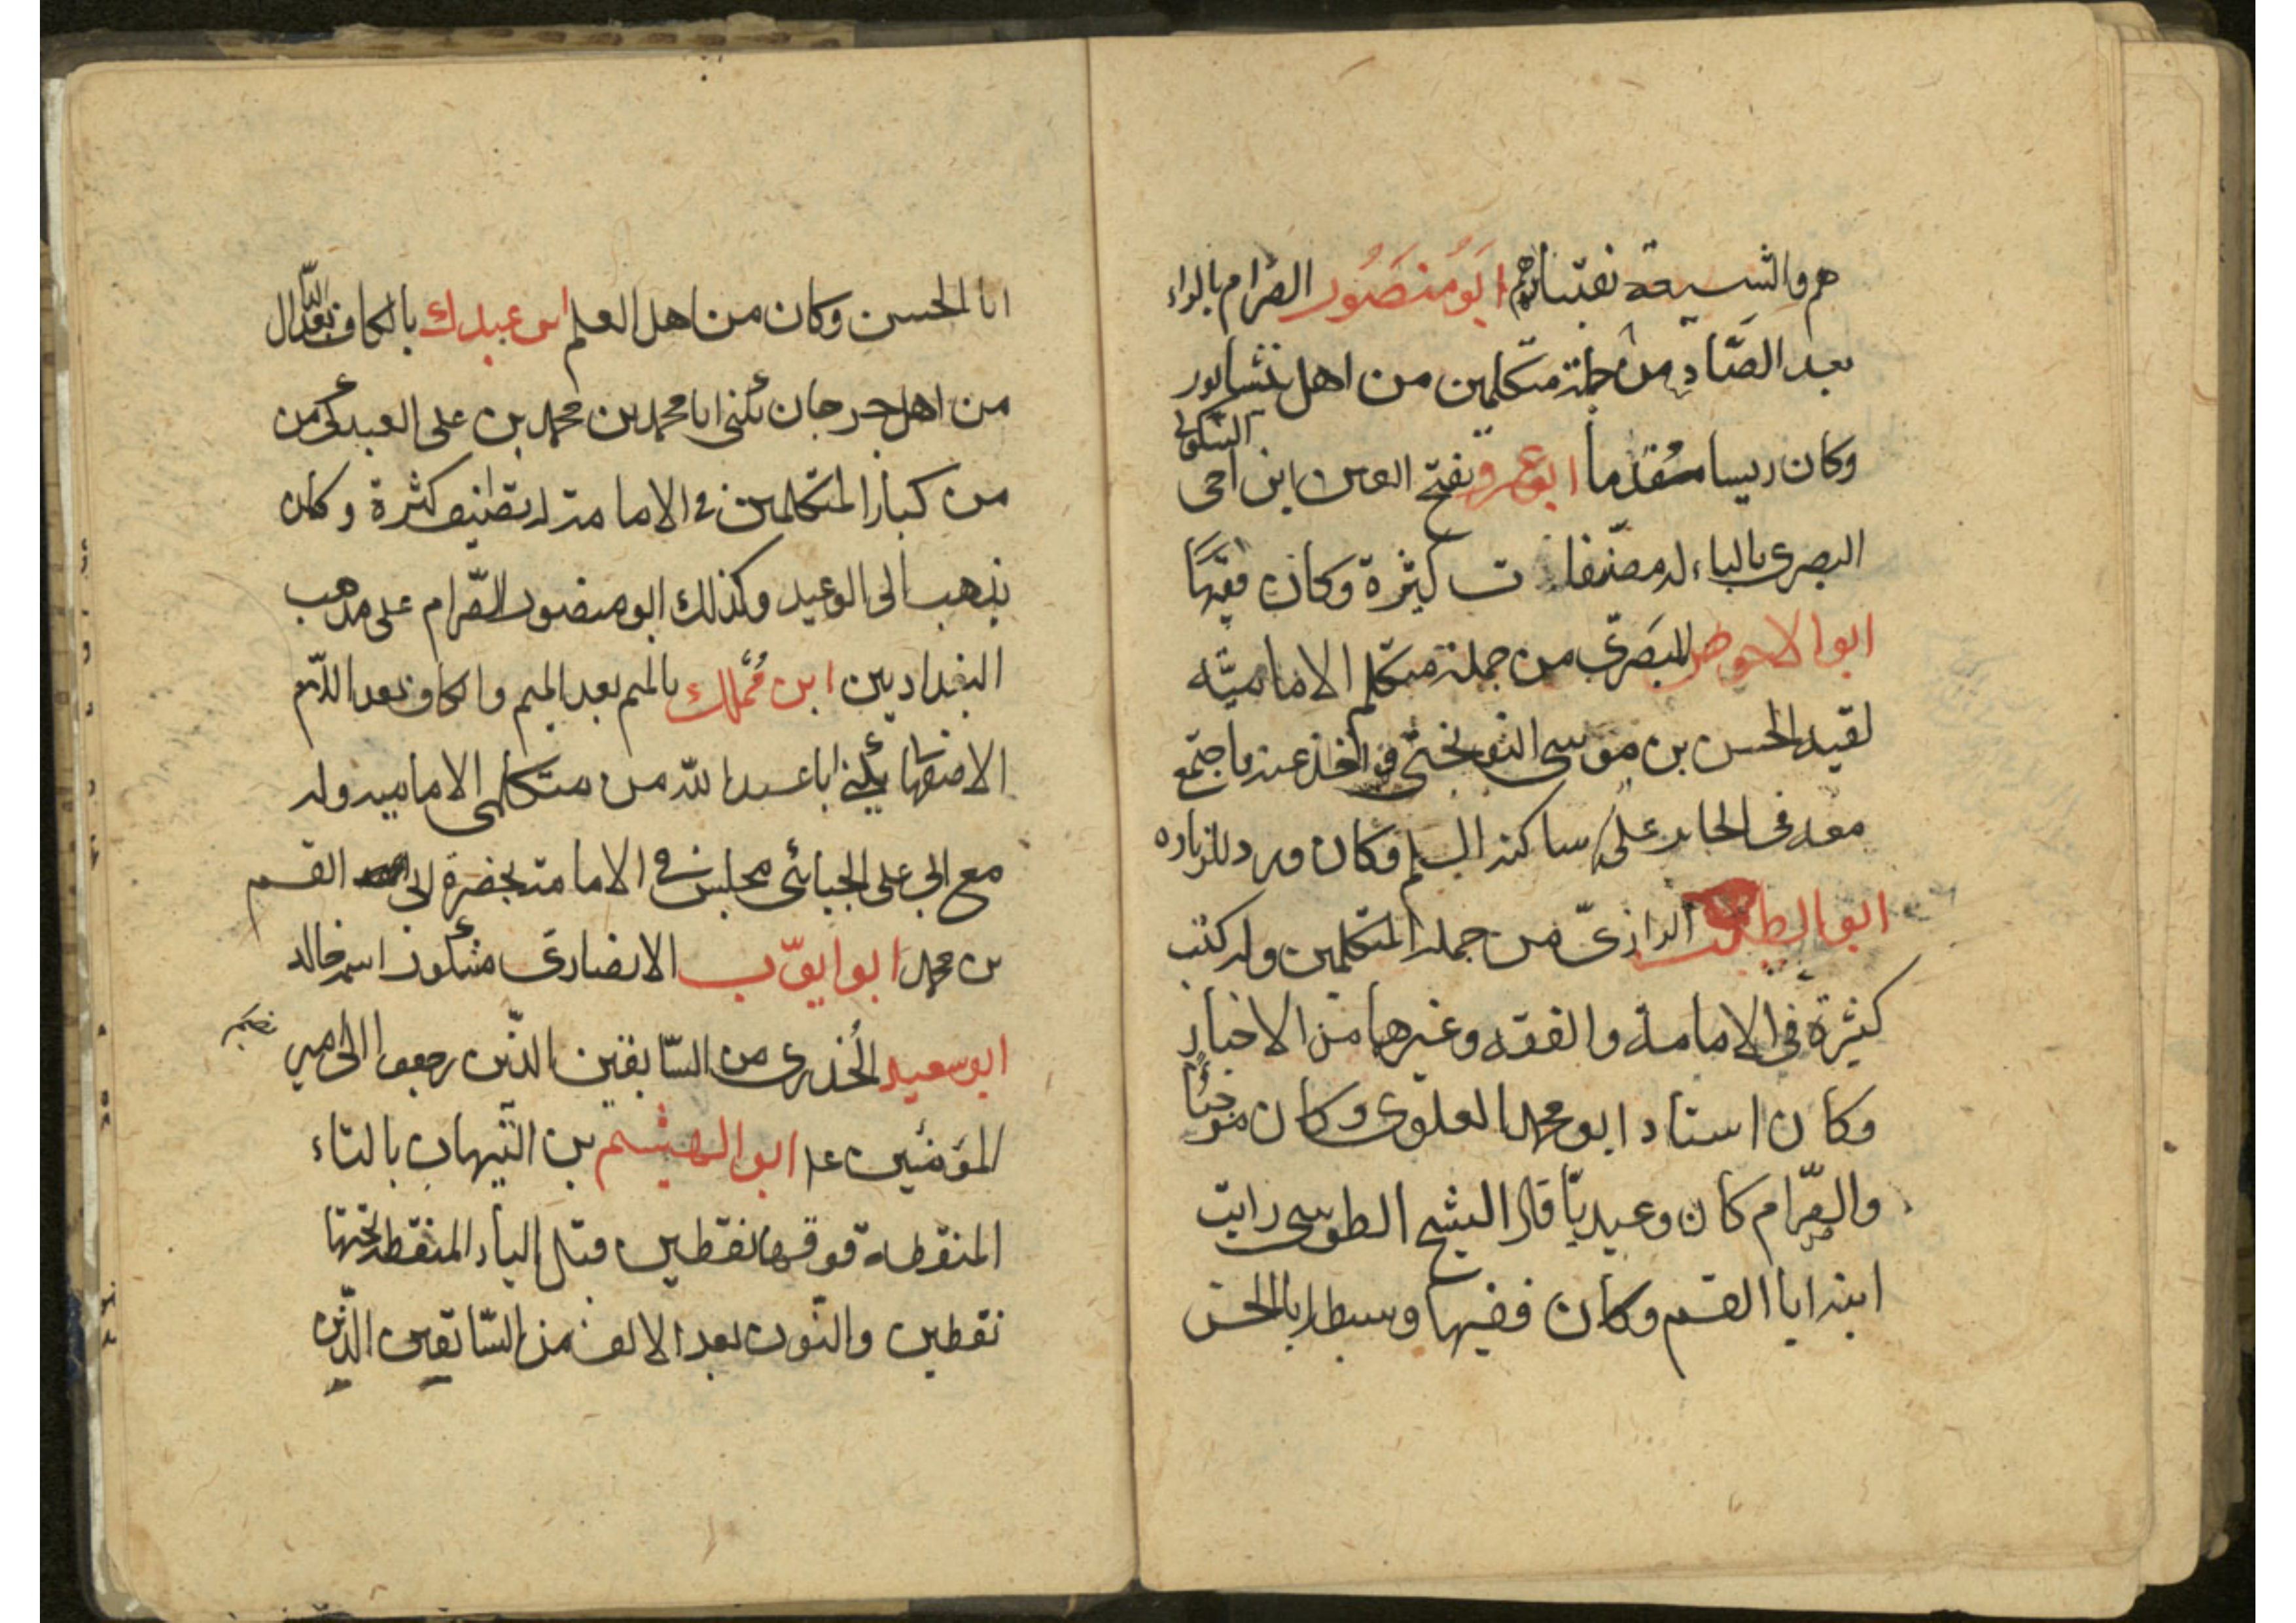 هم والشيعة نفتبارهم ابَو مُنصَور الصّرام بالراء
بعد الصّاد من جملة متكلمين من اهل نيشابور
وكان رييسا مقدّما ابو عمرو بفتح العين ابن اخى
السّكونى
البصرى بالباء له مصنّفات كثيرة وكان فقيها
ابو الاحوص البصَرىّ من جملة متكلم الاماميّه
لقيه الحسن بن موسى النوبختى و اخذ عنه واجتمع
معه فى الحاير على ساكنه السلم وكان ورد للزياره
ابو الطيب الرازىّ من جملة المتكلمين وله كتب
كثيرة فى الامامة والفقه وغيرها من الاخبار
وكان استاد ابو محمد العلوى وكان مرجئا
والصّرام كان وعيديّا قال الشيخ الطوسى رايت
ابنه ابا القسم وكان فقيها وسبطه ابا الحسن
ابا الحسن وكان من اهل العلم ابن عبدك بالكاف بعد الدّال
من اهل جرجان يُكنى ابا محمد بن محمد بن على العبدكى من
من كبار المتكلمين فى الامامة له تصانيف كثرة وكان
يذهب الى الوعيد وكذلك ابو منصور الصّرام على مذهب
البغداديين ابن مُملك بالميم بعد الميم والكاف بعد اللّام
الاصفهانى يُكنى ابا عبد الله من متكلمى الاماميه وله
مع ابى على الجبائى مجلس فى الامامة بحضرة ابى القسم
بن محمد ابو ايوّب الانصارىّ مشكور اسمه خالد
ابو سعيد الخُدرى من السّابقين الذّين رجعوا الى امير
المؤمنين ع ابو الهيثم بن التّيهان بالتاء
المنقوطه فوقها نقطين قبل الياء المنقطه تحتها
نقطين والنّون بعد الالف من السّابقين الذّين